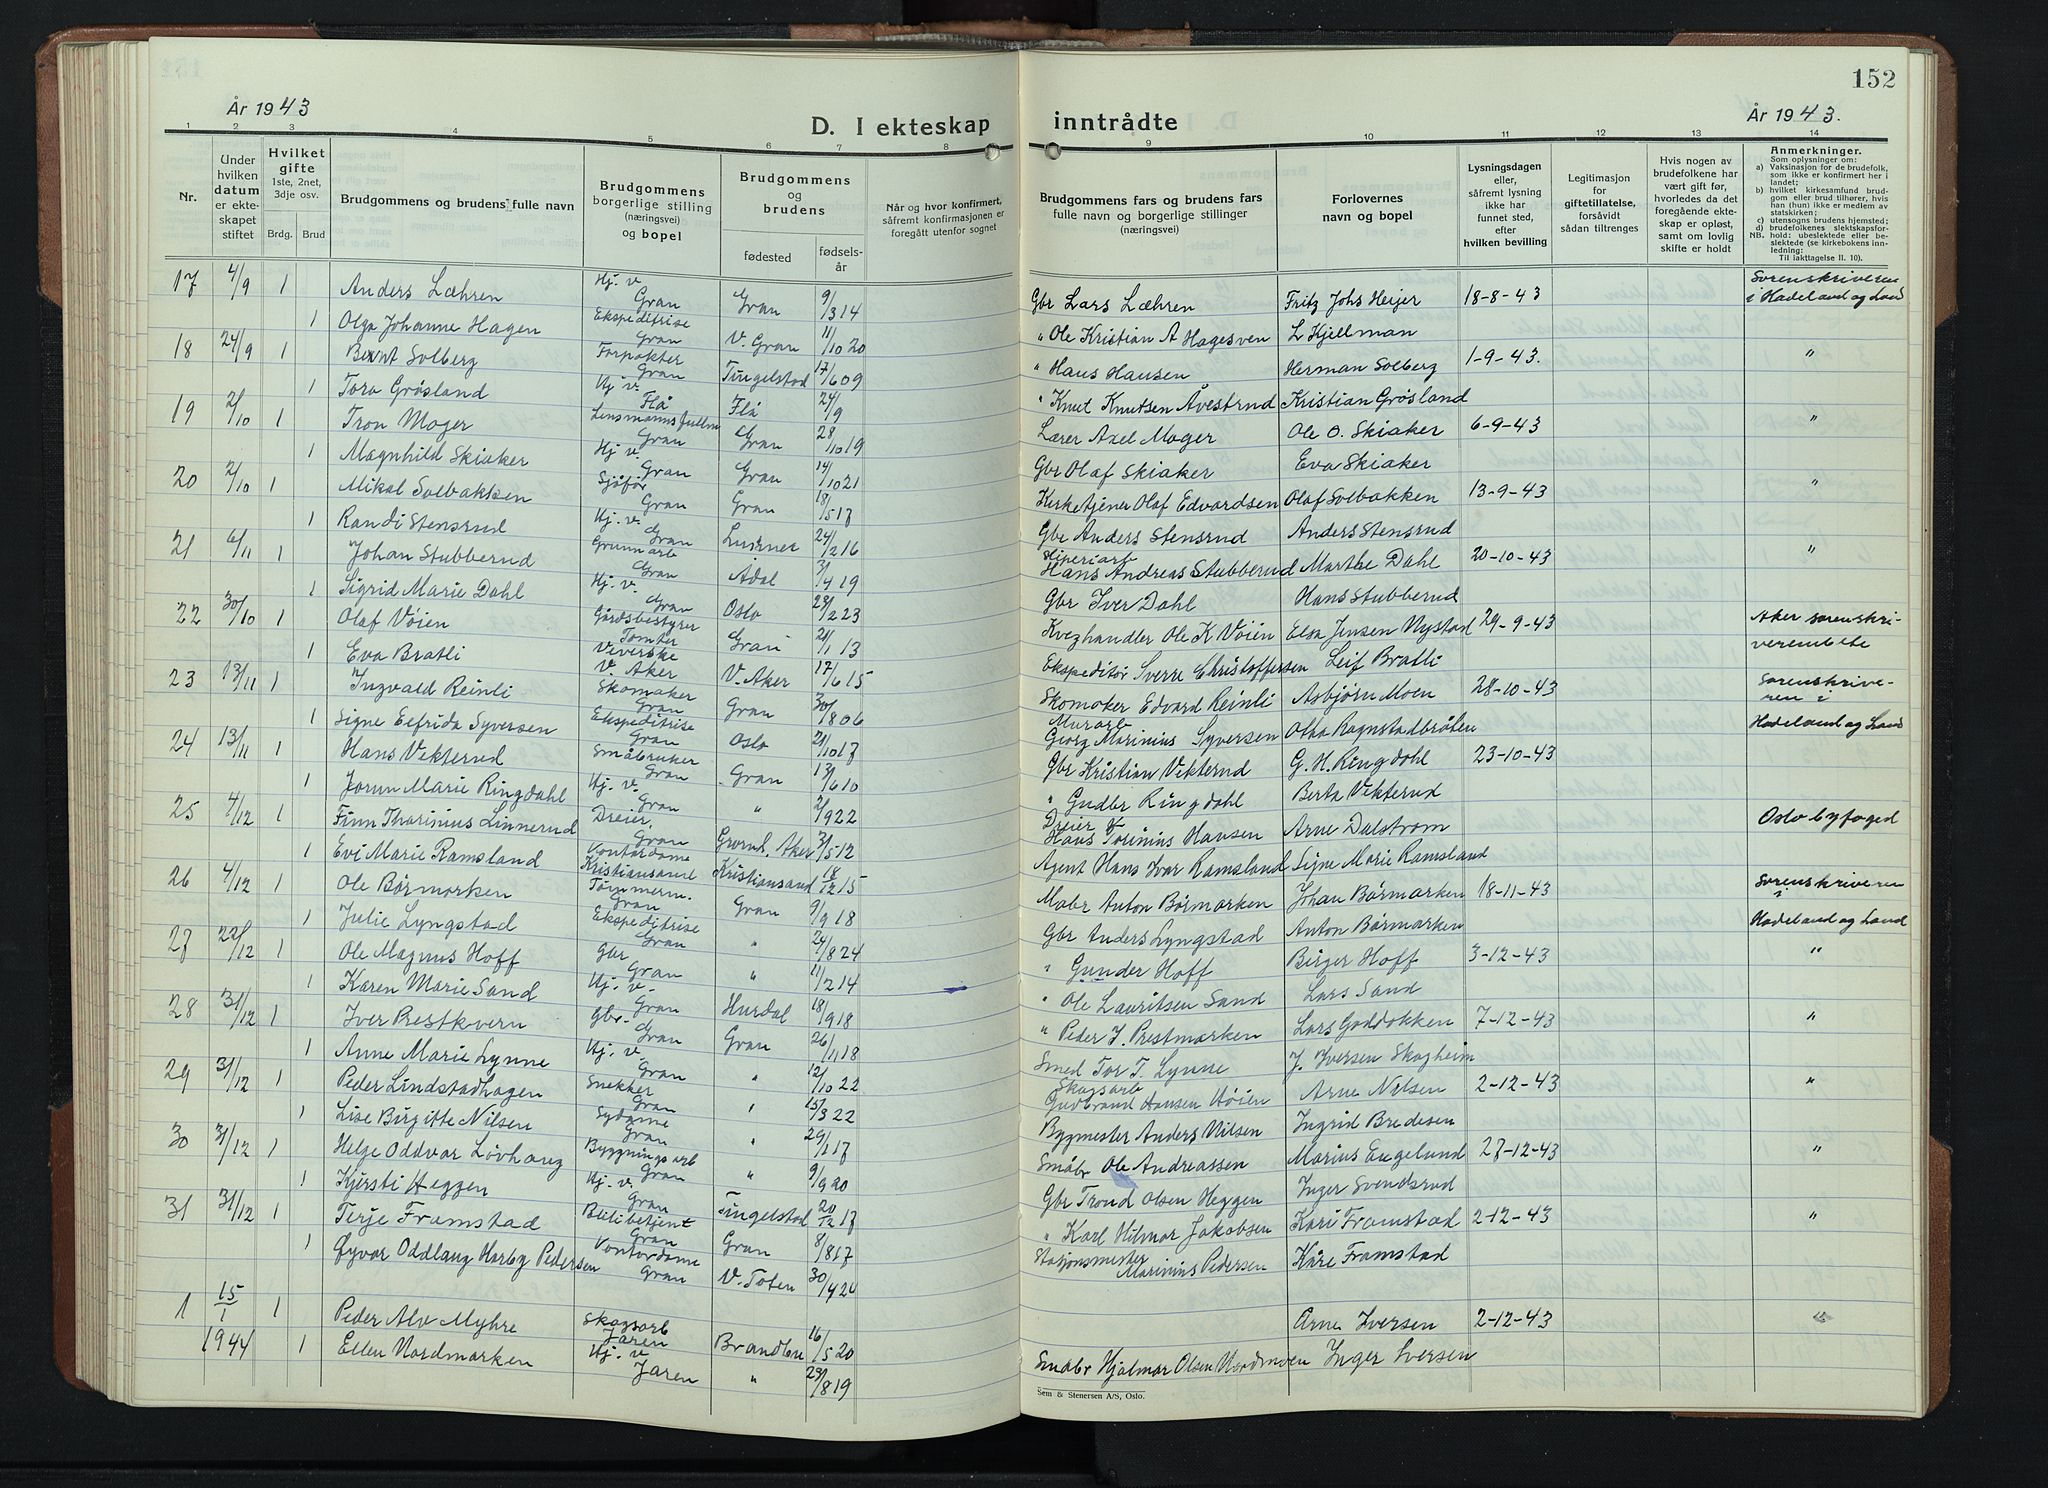 152
År 1943
D. I ekteskap inntrådte
År 1943.
1 2 3 4 5 6 7 8 9 10 11 12 13 14
Nr.
Under hvilken datum er ekteskapet stiftet
Hvilket gifte
1ste, 2net, 3dje osv.
Brdg. Brud
Brudgommens og brudens fulle navn
Brudgommens borgerlige stilling (næringsvei) og bopel
Brudgommens og brudens
fødested
fødselsår
Når og hvor konfirmert, såfremt konfirmasjonen er foregått utenfor sognet
Brudgommens fars og brudens fars fulle navn og borgerlige stillinger (næringsvei)
Forlovernes navn og bopel
Lysningsdagen eller, såfremt lysning ikke har funnet sted, efter hvilken bevilling
Legitimasjon for giftetillatelse, forsåvidt sådan tiltrenges
Hvis nogen av brudefolkene har vært gift før, hvorledes da det foregående ekteskap er opløst, samt om lovlig skifte er holdt
Anmerkninger.
Som oplysninger om:
a) Vaksinasjon for de brudefolk, som ikke er konfirmert her i landet;
b) hvilket kirkesamfund brudgom eller brud tilhører, hvis han (hun) ikke er medlem av statskirken;
c) utensogns brudens hjemsted;
d) brudefolkenes slektskapsforhold: ubeslektede eller beslektede (se kirkebokens innledning:
NB.
Til iakttagelse II. 10).
17 4/9 1 Anders Læhren Hj. v Gran Gran 9/3 14 Gbr Lars Læhren Fritz Johs Heijer 18-8-43 Sorenskriveren i Hadeland og Land
1 Olga Johanne Hagen Ekspeditrise Gran V. Gran 11/10 20 " Ole Kristian A Hagesven L Kjellman
18 24/9 1 Bernt Solberg Forpakter Gran Tingelstad 17/6 09 " Hans Hansen Herman Solberg 1-9-43. "
1 Tora Grøsland Hj. v. Flå Flå 24/9 " Knut Knutsen Åvestrud Kristian Grøsland
19 2/10 1 Tron Moger Gran Gran 28/10 19 Lærer Axel Moger Ole O. Skiaker 6-9-43 "
1 Magnhild Skiaker Hj. v. Gran Gran 14/10 21 Gbr Olaf Skiaker Eva Skiaker
20 2/10 1 Mikal Solbakken Sjåfør Gran Gran 18/5 17 Kirketjener Olaf Edvardsen Olaf Solbakken 13-9-43 "
1 Randi Stensrud Hj. v. Gran 24/2 16 Gbr Anders Stensrud Anders Stensrud
21 6/11 1 Johan Stubberud Gruvearb Gran Ådal 3/4 19 Hans Andreas Stubberud Marthe Dahl 20-10-43 "
1 Sigrid Marie Dahl Hj. v. Gran Oslo 23/2 23 Gbr Iver Dahl Hans Stubberud
22 30/10 1 Olaf Vøien Gårdsbestyrer Tomter Gran 21/1 13 Kveghandler Ole K Vøien Elsa Jensen Nystad 29-9-43 Aker sorenskriverembete
1 Eva Bratli Veverske V. Aker V. Aker 17/6 15 Ekspeditør Sverre Christoffersen Leif Bratli
23 13/11 1 Ingvald Reinli Skomaker Gran Gran 30/8 06 Skomaker Edvard Reinli Asbjørn Moen 28-10-43 Sorenskriveren i Hadeland og Land
1 Signe Elfrida Syversen Ekspeditrise Gran Oslo 21/10 17 Murarb Georg Marinius Syversen Otto Rognstadbråten
24 13/11 1 Hans Vekterud Småbruker Gran Gran 13/6 10 Gbr Kristian Vekterud G. H. Ringdahl 23-10-43
1 Jorun Marie Ringdahl Hj. v. Gran " 2/9 22 " Gudbr Ringdahl Berta Vekterud
25 4/12 1 Finn Thorinius Linnerud Dreier, Gran Grorud, Aker 31/5 12 Dreier Hans Torinius Hansen Arne Dalstrøm Oslo byfoged
1 Evi Marie Ramsland Kontordame Kristiansand Kristiansand 18/12 15 Agent Hans Ivar Ramsland Signe Marie Ramsland
26 4/12 1 Ole Børmarken Tømmerm. Gran Gran 9/9 18 Mabr Anton Børmarken Johan Børmarken 18-11-43 Sorenskriveren i Hadeland og Land
1 Julie Lyngstad Ekspeditrise Gran " 24/8 24 Gbr Anders Lyngstad Anton Børmarken
27 22/12 1 Ole Magnus Hoff Gbr Gran " 11/2 14 " Gunder Hoff Birger Hoff 3-12-43 "
1 Karen Marie Sand Hj. v. Gran Hurdal 18/9 18 " Ole Lauritsen Sand Lars Sand
28 31/12 1 Iver Prestkvern Gbr. Gran Gran 26/11 18 " Peder I. Prestmarken Lars Goddokken 7-12-43 "
1 Anne Marie Lynne Hj. v. Gran " 12/10 22 Smed Tor T. Lynne J. Iversen Skogheim
29 31/12 1 Peder Lindstadhagen Snekker Gran " 15/3 22 Skogsarb Gudbrand Hansen Høien Arne Nilsen 2-12-43 "
1 Lise Birgitte Nilsen Sydame Gran " 29/1 17 Bygmester Anders Nilsen Ingrid Bredesen
30 31/12 1 Helge Oddvar Løvhaug Bygningsarb Gran " 9/9 20 Småbr Ole Andreassen Marius Engelund 27-12-43 "
1 Kjersti Heggen Hj. v. Gran Tingelstad 20/12 17 Gbr Trond Olsen Heggen Inger Svendsrud
31 31/12 1 Terje Framstad Bilbetjent Gran Gran 8/8 17 " Karl Hilmar Jakobsen Kari Framstad 2-12-43 "
1 Øyvor Oddlaug Horby Pedersen Kontordame Gran V. Toten 30/4 24 Stasjonsmester Marinius Pedersen Kåre Framstad
1 15/1 1944 1 Peder Alv Myhre Skogsarb Jaren Brandbu 16/5 20 Arne Iversen 2-12-43 "
1 Ellen Nordmarken Hj. v Jaren " 23/8 19 Småbr Hjalmar Olsen Nordmoen Inger Iversen
Sem & Stenersen A/S, Oslo.